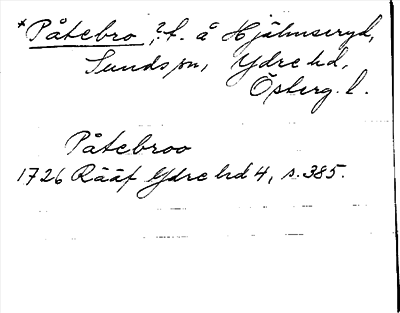 *Påtebro, ?t. å Hjälmseryd,
Sunds sn, Ydre hd,
Österg. l.
Påtebroo
1726 Rääf Ydre hd 4, s. 385.